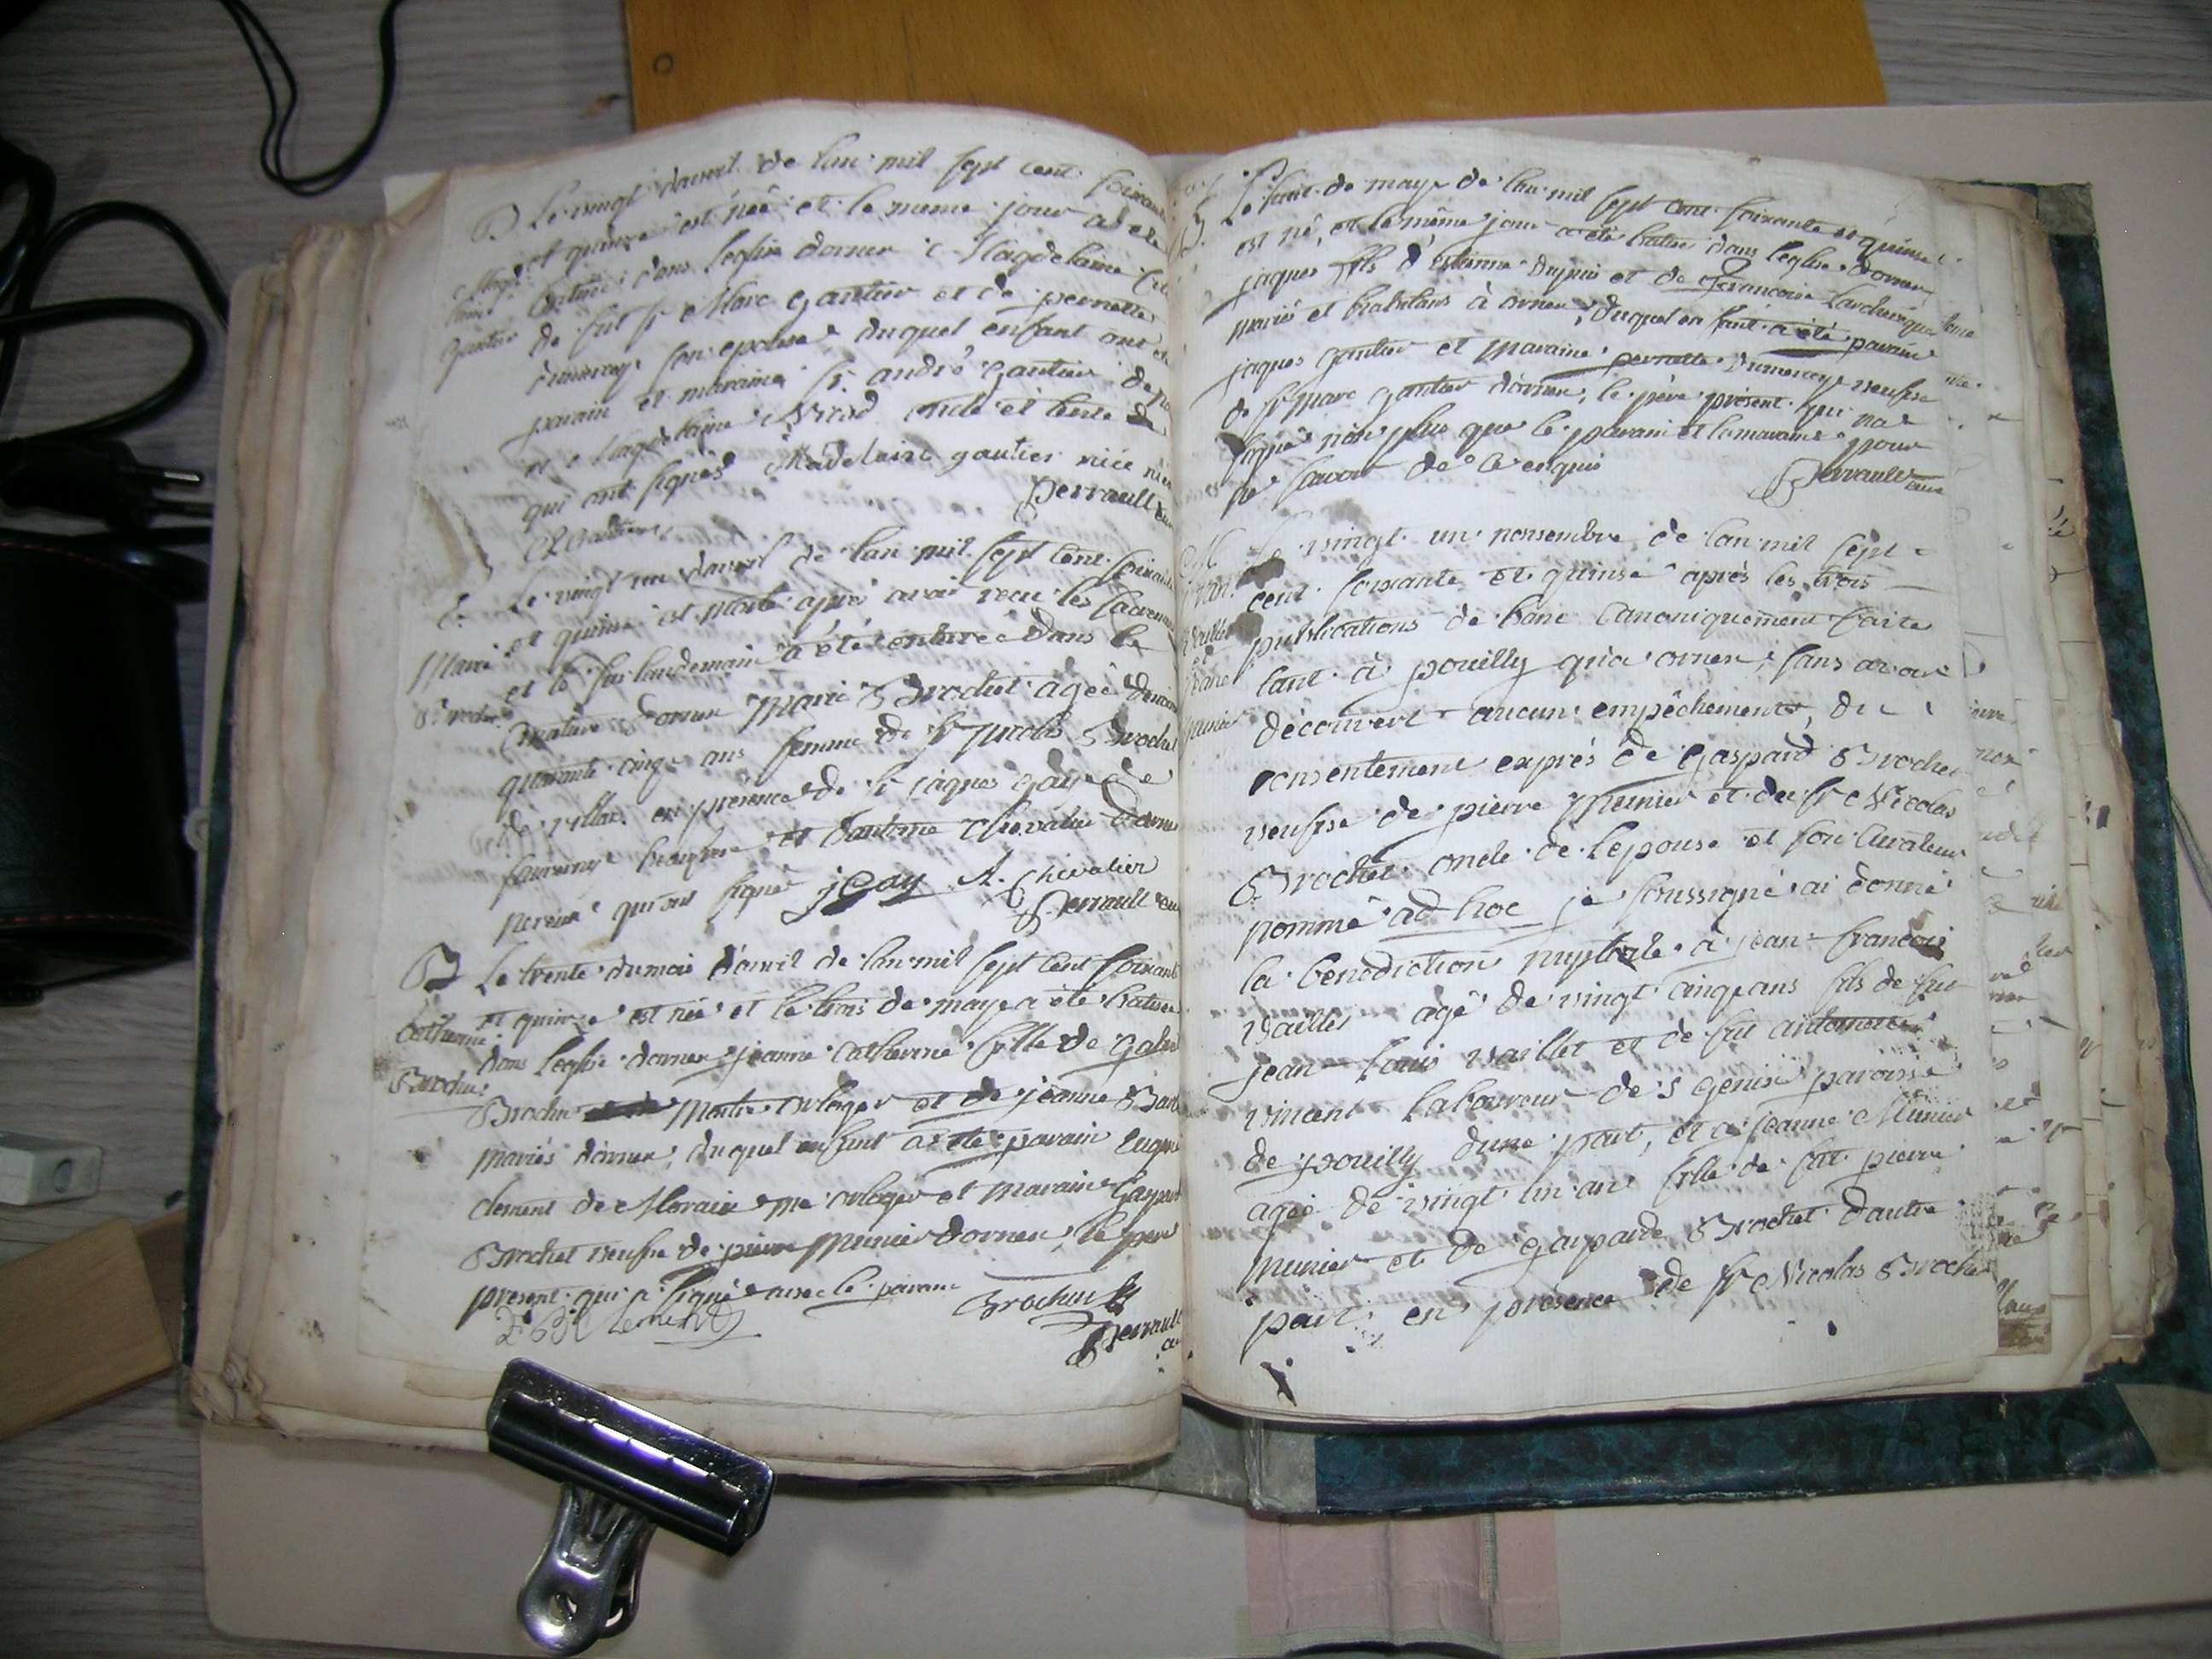 B Le vingt d'avril de l'an mil sept cent soixante
et quinze est née et le meme jour a été
batisée dans l'eglise dornex Magdelaine
de fut Sr Marc Gautier et de pernette
dumoney son epouse duquel enfant ont été
parain et maraine Sr. andré Gautier
et Magdelaine oncle et tente
qui ont signés Madelaine gautier
Perrault curé
E. Le vingt un d'avril de l'an mil sept cent soixante
et quinse est morte après avoir recu les sacremens
et le surlendemain a été enterrée dans le
Cimetiere dornex Marie Brochet agée denviron
quarante cinq ans femme de Sr Nicolas Brochet
de en presence de Sr jaques gay de
et d'antoine Chevalier
qui ont signé jGay A. Chevalier
Perrault curé
Marie
Brochet
B Le trente du mois d'avril de l'an mil sept cent soixante
et quinze est née et le trois de maye a été batisée
dans l'eglise dornex jeanne catherine fille de
Brochu Maitre orloger et de jeanne
mariés dornex, duquel enfant a été parain
clement de orloger et maraine Gaspard
Brochet veufve de pierre Munier dornex, le pere
present qui a signé avec le parain
Brochu
Perrault
catherine
Brochu
B. Le huit de maye de l'an mil sept cent soixante et quinse
est né, et le même jour a été batisé dans l'eglise dornex
jaques fils d'etienne dupuis et de francoise Larcheveque
mariés et habitans à ornex, duquel enfant a été parain
jaques gautier et maraine pernette dumoney veufve
de Sr Marc gautier dornex, le père présent qui n'a
signé non plus que le parain et la maraine pour
ne savoir de ce enquis
Perrault curé
M Le vingt un novembre de l'an mil sept
cent soixante et quinse après les trois
publications de banc Canoniquement faite
tant à pouilly qu'a ornex, sans avoir
découvert aucun empêchement, du
consentement exprés de Gaspard Brochet
veufve de pierre Munier et du Sr Nicolas
Brochet oncle de l'epouse et son curateur
nommé ad hoc je soussigné ai donné
la benediction nuptiale à jean francois
vaillet agé de vingt cinq ans fils de fut
jean louis vaillet et de fut antoinette
vincent laboureur de s genis paroisse
de pouilly dune part, et à jeanne Munier
agée de vingt un an fille de fut pierre
munier et de gasparde Brochet dautre
part en presence de Sr Nicolas Brochet